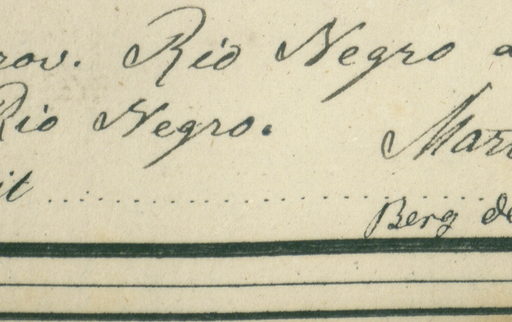 rov. Rio Negro a
Rio Negro. Mar
it
Berg de